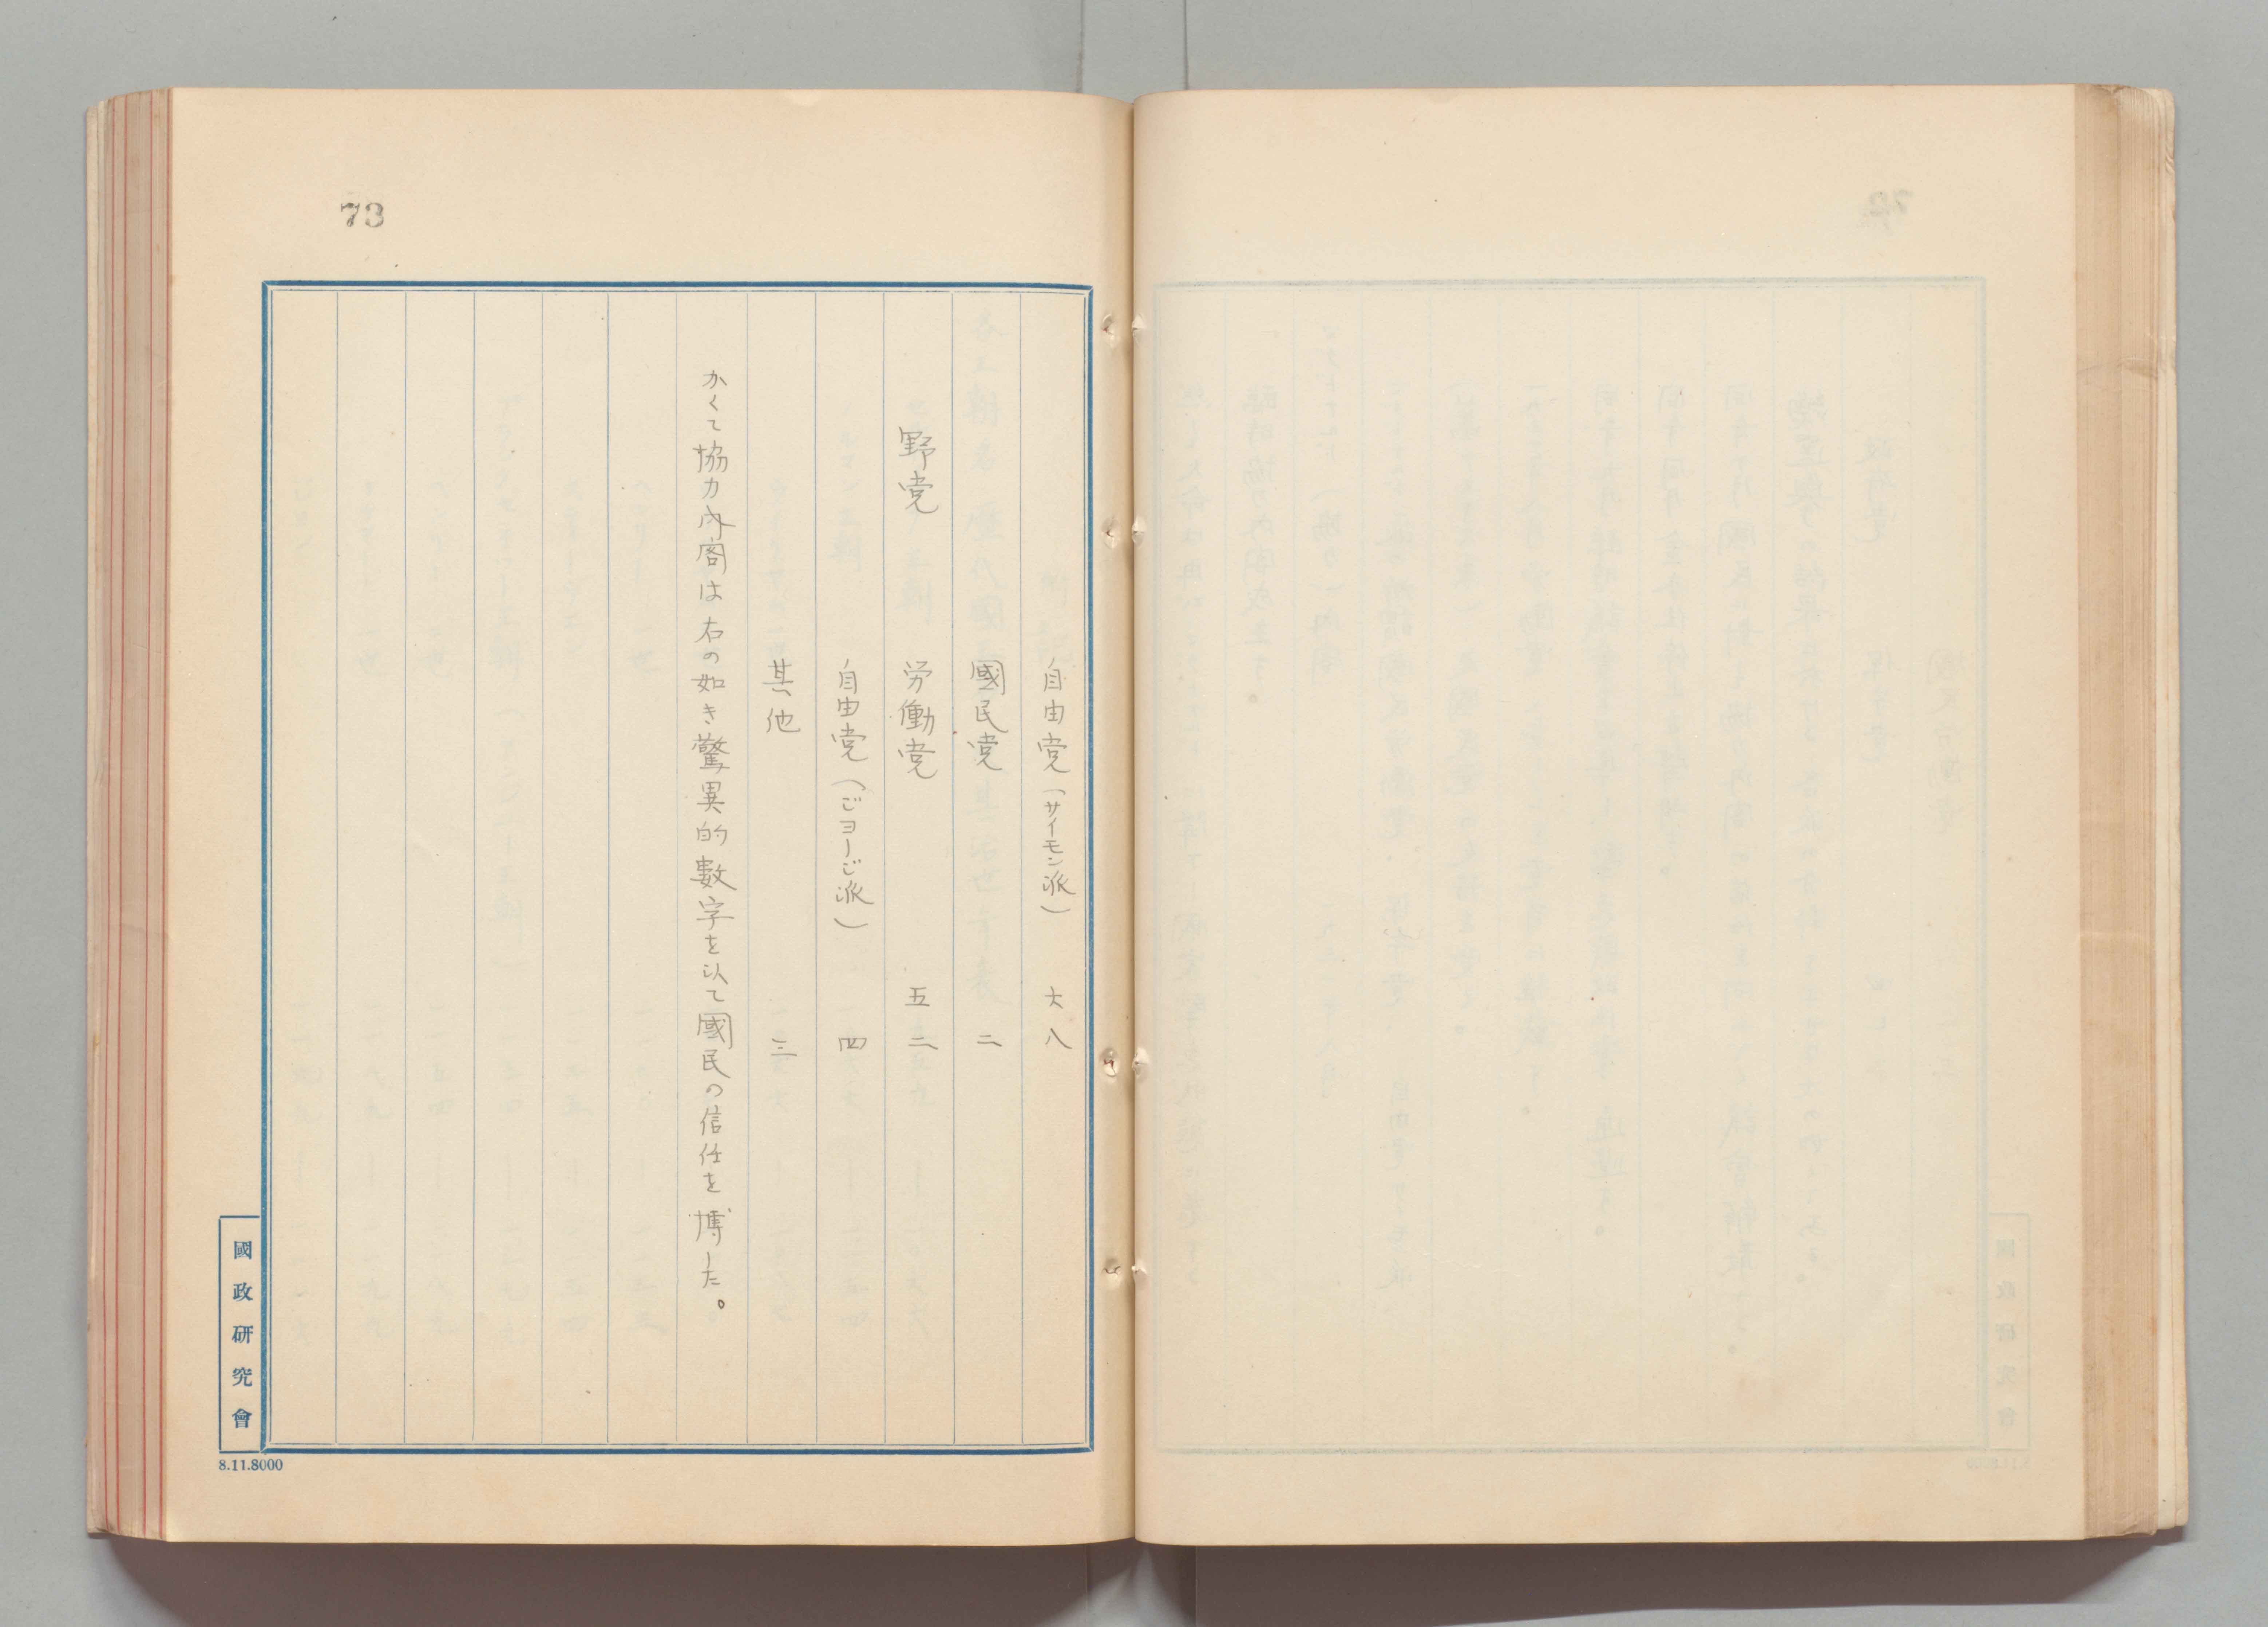 73
自由党（サイモン派）　六八
國民党　二
野党　労働党　五二
自由党（ジョージ派）　四
其他　三
かくて協力内閣は右の如き驚異的數字を以て國民の信任を博した。
國政研究會
8.11.8000